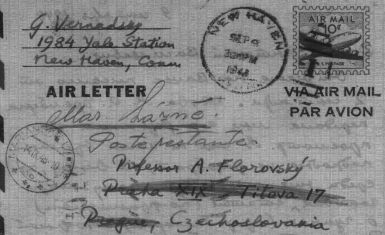 G. Vernadsky
1984 Yale Station
New Haven, Conn
NEW HAVEN
SEP
1948
AIR MAIL
10¢
AIR LETTER
VIA AIR MAIL
PAR AVION
Mar. Lázně.
Poste restante.
Professor A. Florovský
Praha XIX, Titova 17
Prague, Czechoslovakia